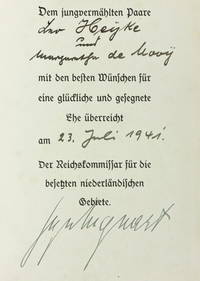 Dem jungvermählten Paare
Leo Heijke
und
Margaretha de Mooij
mit den besten Wünschen für
eine glückliche und gesegnete
Ehe überreicht
am 23. Juli 1941.
Der Reichskommissar für die
besetzten niederländischen
Gebiete.